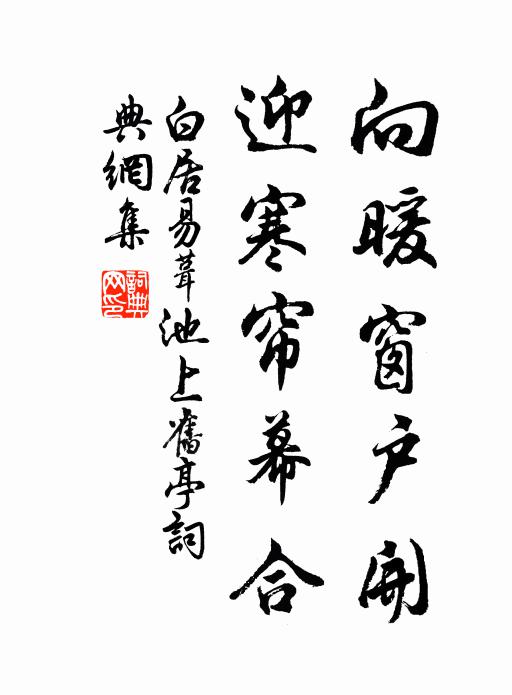 向暖窗户開
迎寒帘幕合
白居易葺池上舊亭詞
典網集
詞典網印